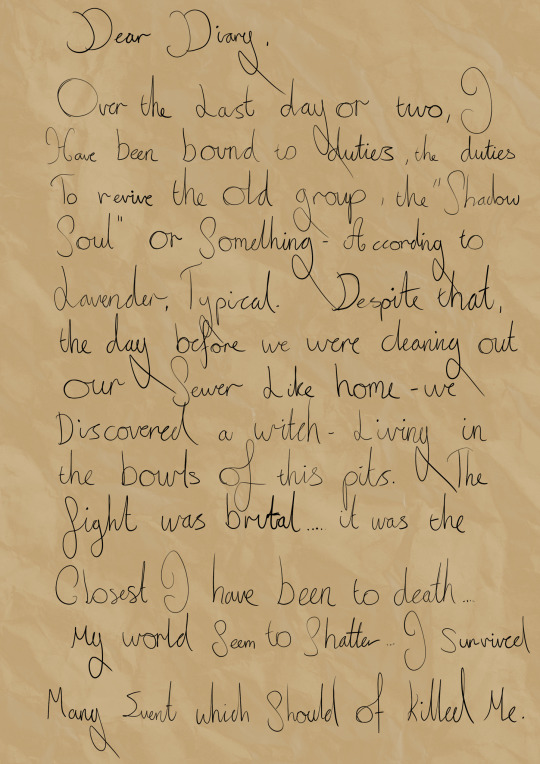 Dear Diary,
Over the Last day or two, I
Have been bound to duties, the duties
To revive the old group, the "Shadow
Soul" or Something - According to
Lavender, Typical. Despite that,
the day before we were cleaning out
our Sewer Like home - we
Discovered a witch - Living in
the bowls of this pits. The
fight was brutal.... it was the
Closest I have been to death...
My world Seem to Shatter... I Survived
Many Event which Should of killed Me.